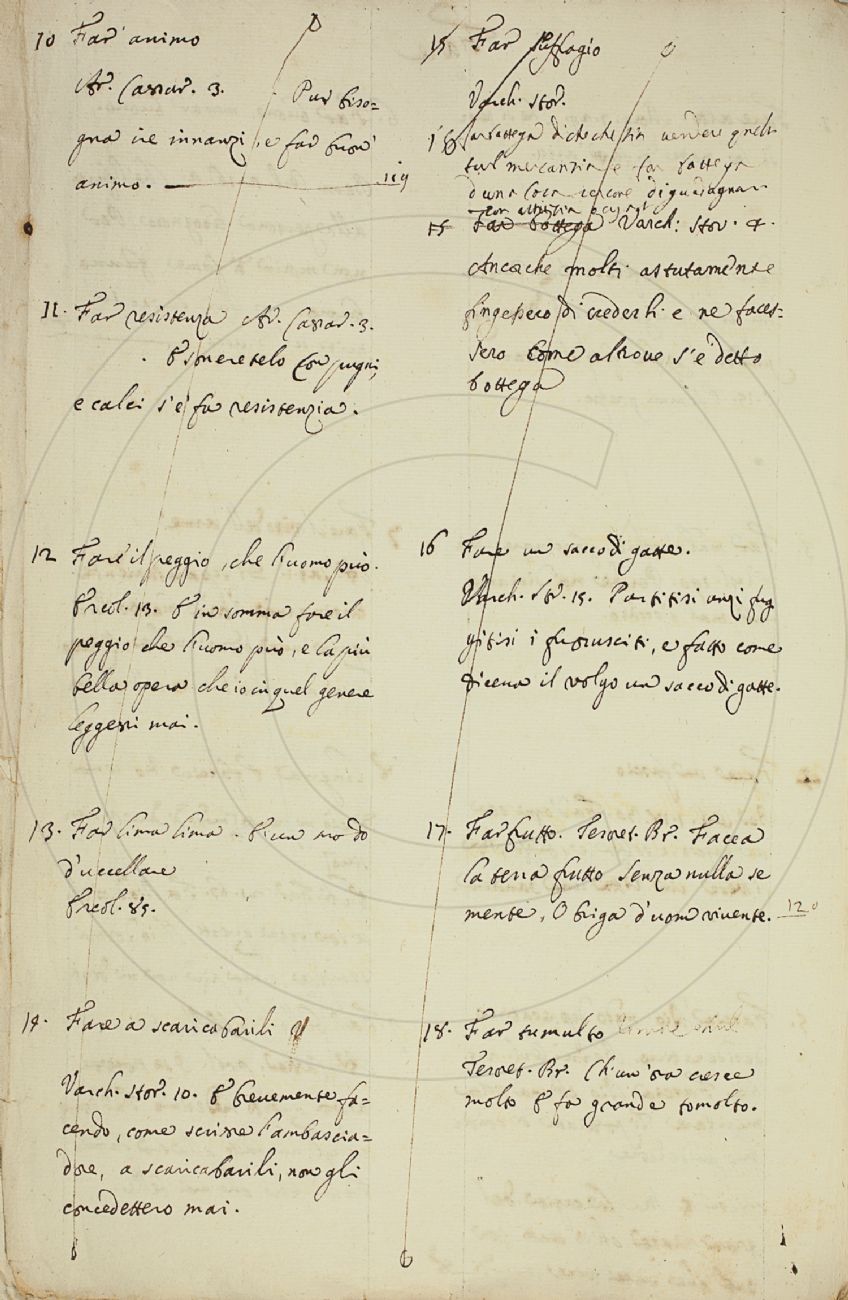 10 Far' animo
Ar. Cassar. 3. Pur biso=
gna ire innanzi, e far buon'
animo. 119
11. Far resistenza Ar. Cassar. 3.
con pugni,
e calci s'e' fa resistenzia.
12 Fare il peggio, che l'uomo può.
Ercol. 13. E in somma fare il
peggio che l'uomo può, e la più
bella opera che io in quel genere
leggessi mai.
13. Far lima lima. È un modo
d'uccellare
Ercol. 85.
14. Fare a scaricabarili
Varch. Stor. 10. E brevemente fa=
cendo, come scrisse l'ambascia=
dore, a scaricabarili, non gli
concedettero mai.
15 Far suffragio
Varch. Stor.
bottega
sul mercanzia e far bottega
d'una cosa di guadagnar
con astuzia
15 Far bottega Varch: Stor. 4.
Ancorche molti astutamente
fingessero di crederli e ne faces=
sero come altrove s'è detto
bottega
16 Fare un sacco di gatte.
Varch. Stor. 15. Partitisi anzi fug
gitisi i fuorusciti, e fatto come
diceva il volgo un sacco di gatte.
17. Far frutto. Tesoret. Br. Facea
la terra frutto Senza nulla se
mente, O briga d'uom vivente. 120
18. Far tumulto
Tesoret. Br. Ch'un'ora cresce
molto E fa grande tomolto.